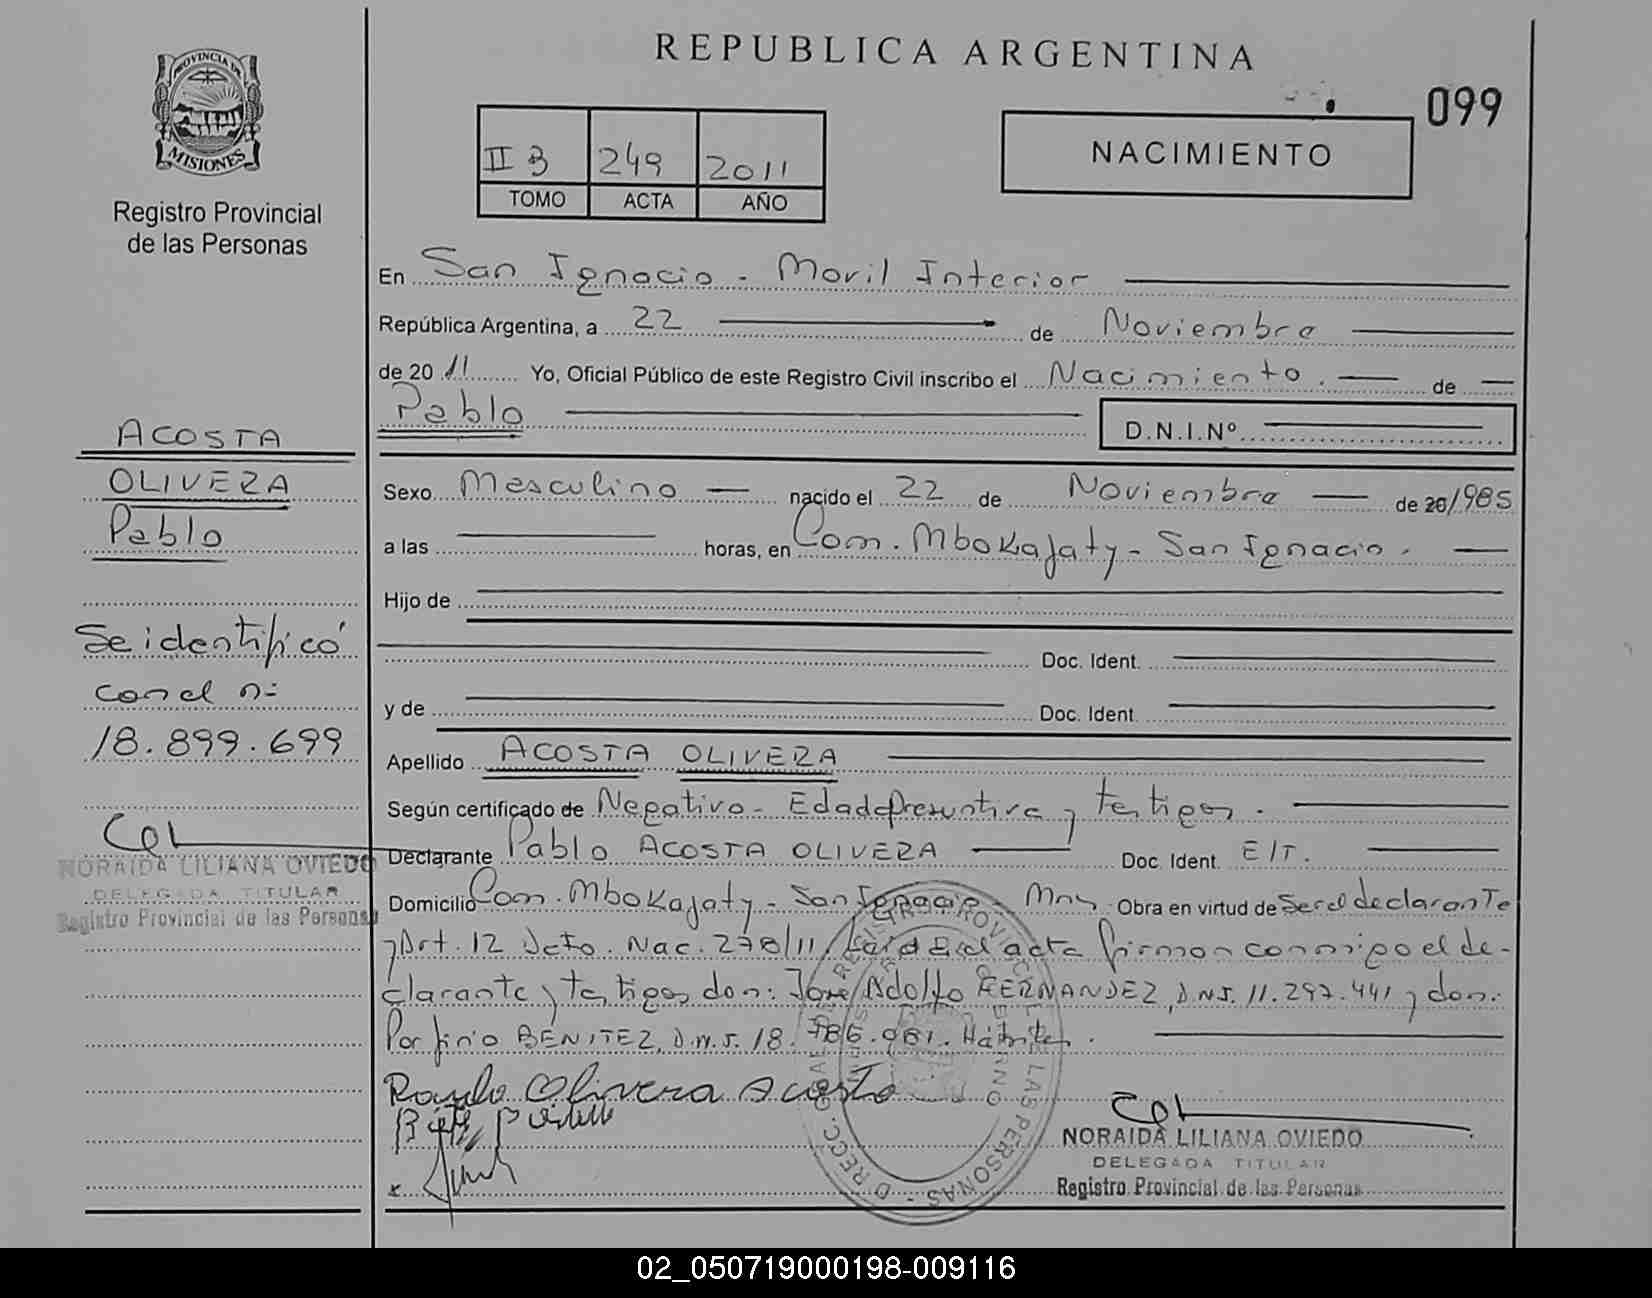 REPUBLICA ARGENTINA
099
PROVINCIA DE
MISIONES
Registro Provincial
de las Personas
II B 249 2011
TOMO ACTA AÑO
NACIMIENTO
En San Ignacio - Movil Interior
República Argentina, a 22 de Noviembre
de 20 11 Yo, Oficial Público de este Registro Civil inscribo el Nacimiento. de
Pablo
D.N.I.Nº
Sexo Masculino nacido el 22 de Noviembre de 20/985
a las horas, en Com. Mbokajaty - San Ignacio.
Hijo de
Doc. Ident.
y de Doc. Ident.
Apellido ACOSTA OLIVERA
Según certificado de Negativo - Edad presuntiva y testigos.
Declarante Pablo ACOSTA OLIVERA Doc. Ident. E/T.
Domicilio Com. Mbokajaty - San Ignacio - Mnes. Obra en virtud de Ser el declarante
y Art. 12 Dcto. Nac. 278/11, Leida el acta firman conmigo el de-
clarante y testigos don: Jose Adolfo FERNANDEZ, D.N.I. 11.297.441 y don:
Porfirio BENITEZ, D.N.I. 18.786.981. Hábiles.
Olivera Acosta
NORAIDA LILIANA OVIEDO
DELEGADA TITULAR
Registro Provincial de las Personas
ACOSTA
OLIVERA
Pablo
Se identificó
con el nº
18.899.699
NORAIDA LILIANA OVIEDO
DELEGADA TITULAR
Registro Provincial de las Personas
02_050719000198-009116